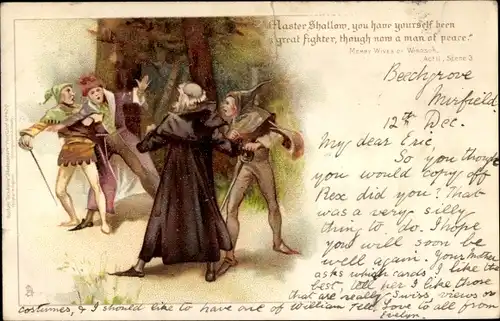 "Master Shallow, you have yourself been
a great fighter, though now a man of peace."
MERRY WIVES OF WINDSOR,
Act II, Scene 3
Beechgrove
Mirfield
12th Dec.
My dear Eric
So you thought
you would copy off
Rex did you? That
was a very silly
thing to do. I hope
you will soon be
well again. Your Mother
asks which cards I like the
best, tell her I like those
that are really Swiss, views or
costumes, & I should like to have one of William Tell, Love to all from
Evelyn.